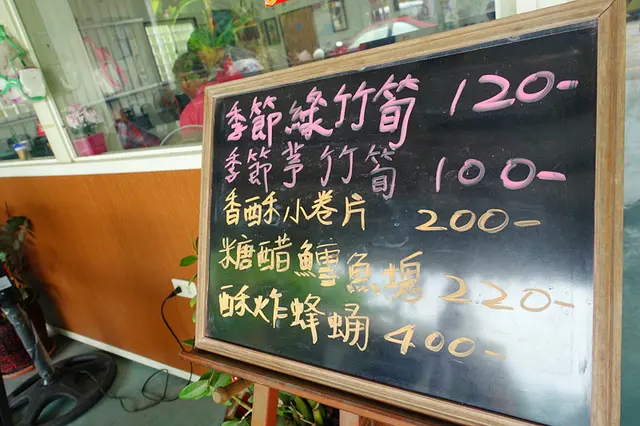 季節綠竹筍 120-
季節茅竹筍 100-
香酥小卷片 200-
糖醋鱈魚塊 220-
酥炸蜂蛹 400-